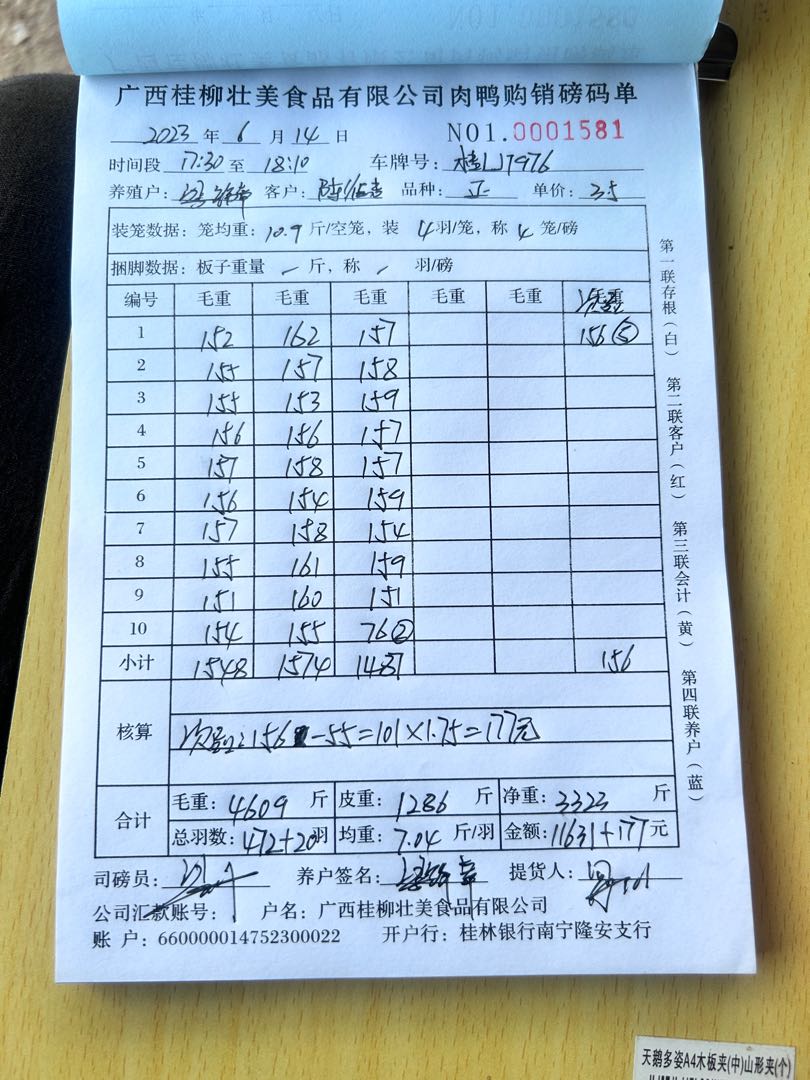 广西桂柳壮美食品有限公司肉鸭购销磅码单
2023 年 6 月 14 日 NO1.0001581
时间段 17:30 至 18:10 车牌号: 桂LJ7976
养殖户: 客户: 品种: 正 单价: 3.5
装笼数据: 笼均重: 10.9 斤/空笼, 装 4 羽/笼, 称 4 笼/磅
捆脚数据: 板子重量 / 斤, 称 / 羽/磅
编号 毛重 毛重 毛重 毛重 毛重
1 152 162 157 156⑤
2 155 157 158
3 155 153 159
4 156 156 157
5 157 158 157
6 156 154 159
7 157 158 154
8 155 161 159
9 151 160 151
10 154 155 76②
小计 1548 1574 1487 156
核算
次鸭:156-55=101×1.75=177元
合计 毛重: 4609 斤 皮重: 1286 斤 净重: 3323 斤
总羽数: 472+20羽 均重: 7.04 斤/羽 金额: 11631+177元
司磅员: 养户签名: 提货人:
公司汇款账号: 户名: 广西桂柳壮美食品有限公司
账 户: 660000014752300022 开户行: 桂林银行南宁隆安支行
第一联存根(白) 第二联客户(红) 第三联会计(黄) 第四联养户(蓝)
天鹅多姿A4木板夹(中)山形夹(个)